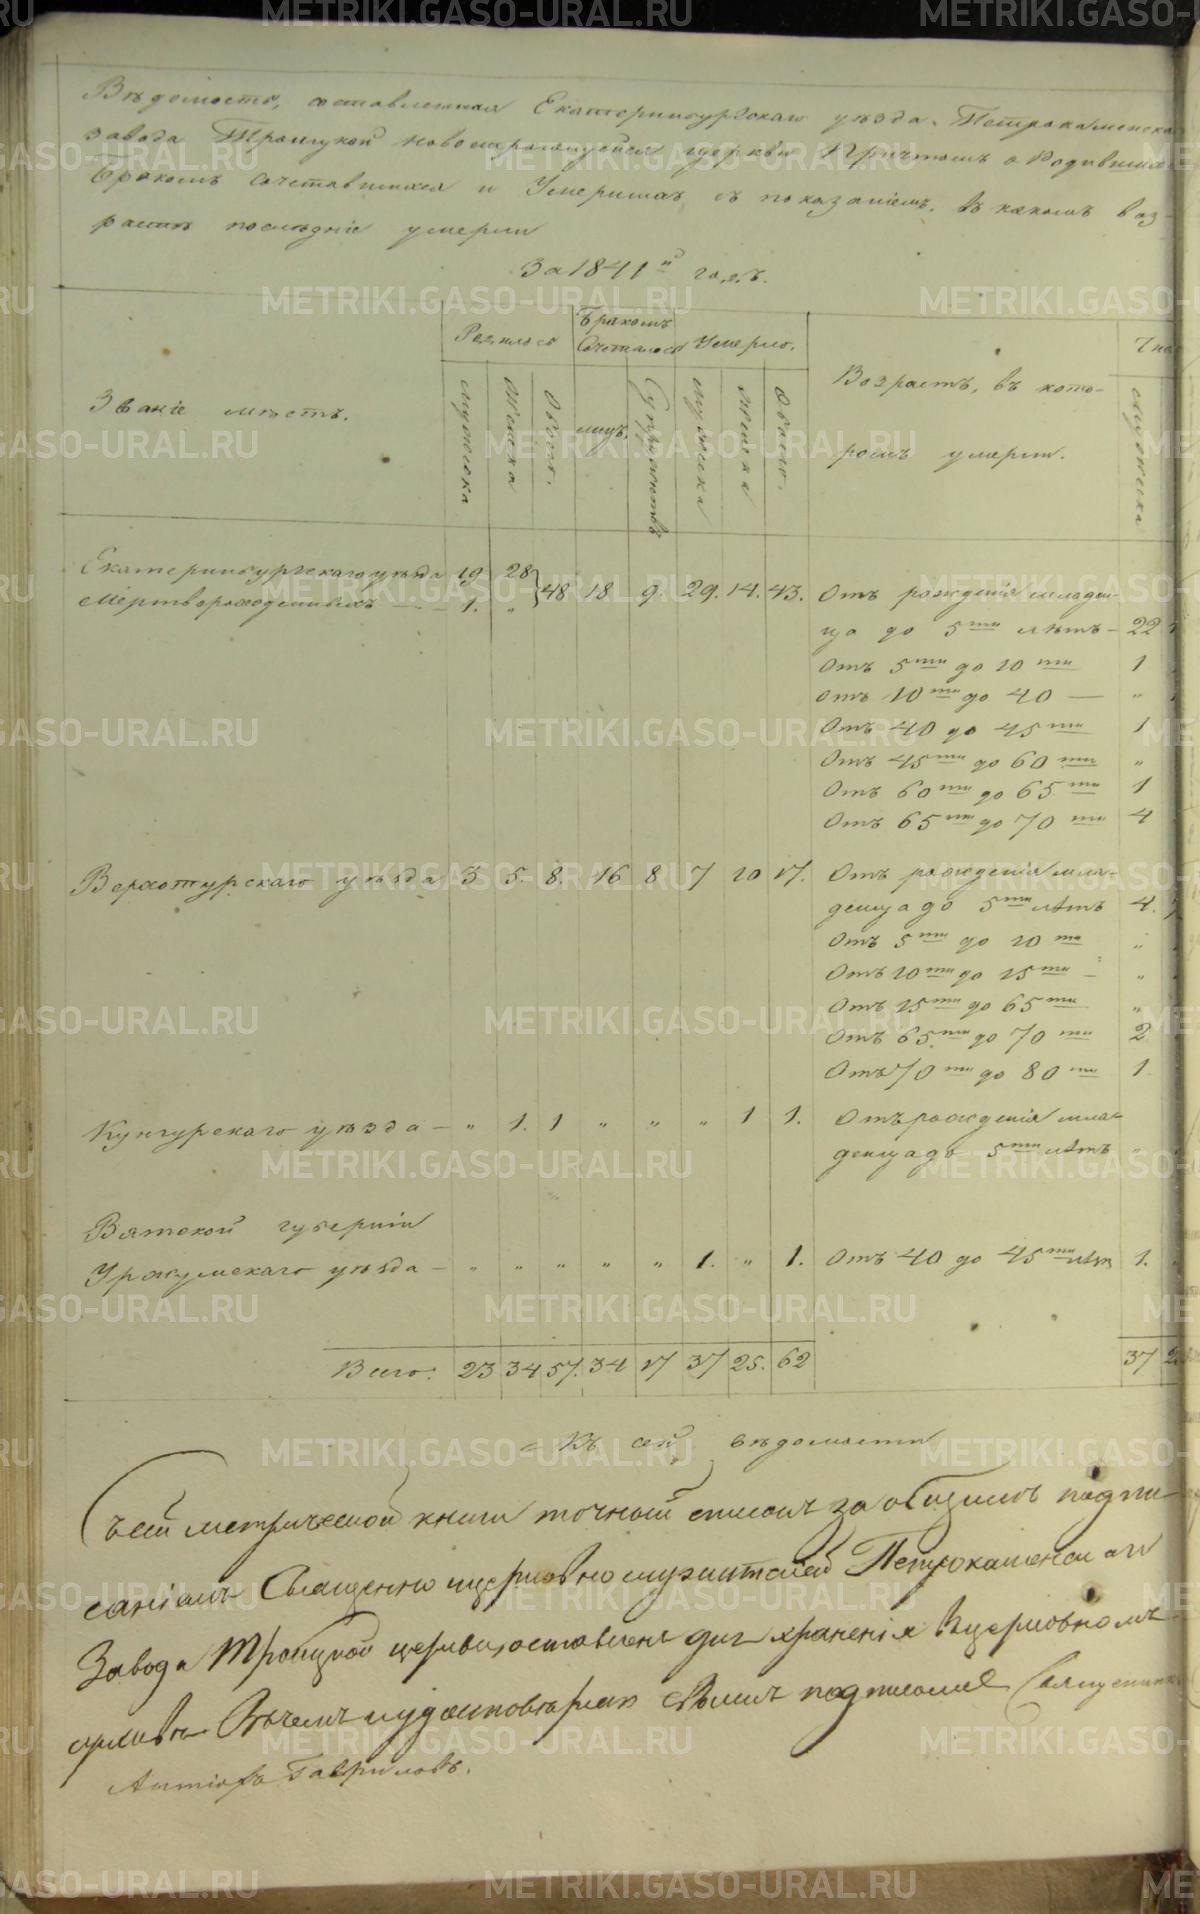 Вѣдомость, составленная Екатеринбургскаго уѣзда, Петрокаменска
завода Троицкой новостроющейся церкви Причтомъ о Родивших
Бракомъ Сочетавшихся и Умершихъ съ показаніемъ, въ какомъ воз-
растѣ послѣдніе умерли
За 1841й годъ.
Званіе мѣстъ. Родилось Бракомъ Сочеталось Умерло. Возрастъ, въ кото-
ромъ умерли.
мужеска женска Обоего. лицъ. Супружествъ мужеска женска Обоего. мужеска
Екатеринбургскаго уѣзда 19 28 48 18 9. 29. 14. 43. Отъ рожденія младен-
Мертворожденныхъ — 1. „
ца до 5ти лѣтъ - 22
Отъ 5ти до 10ти 1
Отъ 10ти до 40 — „
Отъ 40 до 45ти 1
Отъ 45ти до 60ти „
Отъ 60ти до 65ти 1
Отъ 65ти до 70ти 4
Верхотурскаго уѣзда 3 5. 8. 16 8 7 10 17. Отъ рожденія мла-
денца до 5ти лѣтъ 4.
Отъ 5ти до 10ти „
Отъ 10ти до 15ти - „
Отъ 15ти до 65ти „
Отъ 65ти до 70ти 2
Отъ 70ти до 80ти 1
Кунгурскаго уѣзда - „ 1. 1 „ „ „ 1 1. Отъ рожденія мла-
денца до 5ти лѣтъ „
Вятской губерніи
Уржумскаго уѣзда - „ „ „ „ „ 1. „ 1. Отъ 40 до 45ти лѣтъ 1.
Всего: 23 34 57. 34 17 37 25. 62 37
Къ сей вѣдомости
Съ сей метрической книги точный списокъ за общимъ подпи-
саніемъ Священно церковнослужителей Петрокаменскаго
Завода Троицкой церкви, оставленъ для храненія Вцерковномъ
Въ чемъ и удостовѣряю своимъ подписомъ Священникъ
Гавриловъ.
METRIKI.GASO-URAL.RU